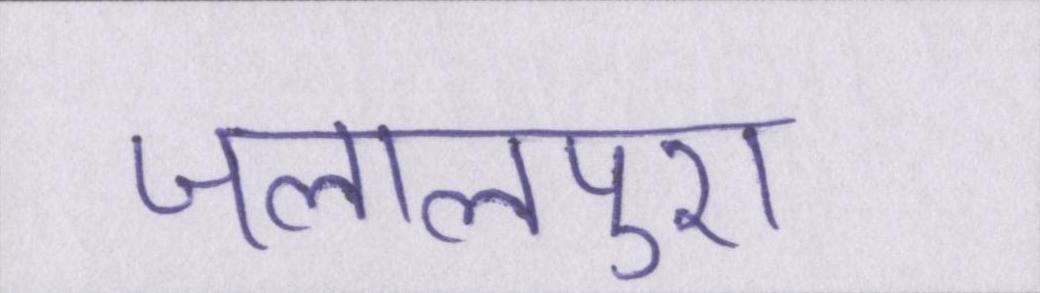 जलालपुरा